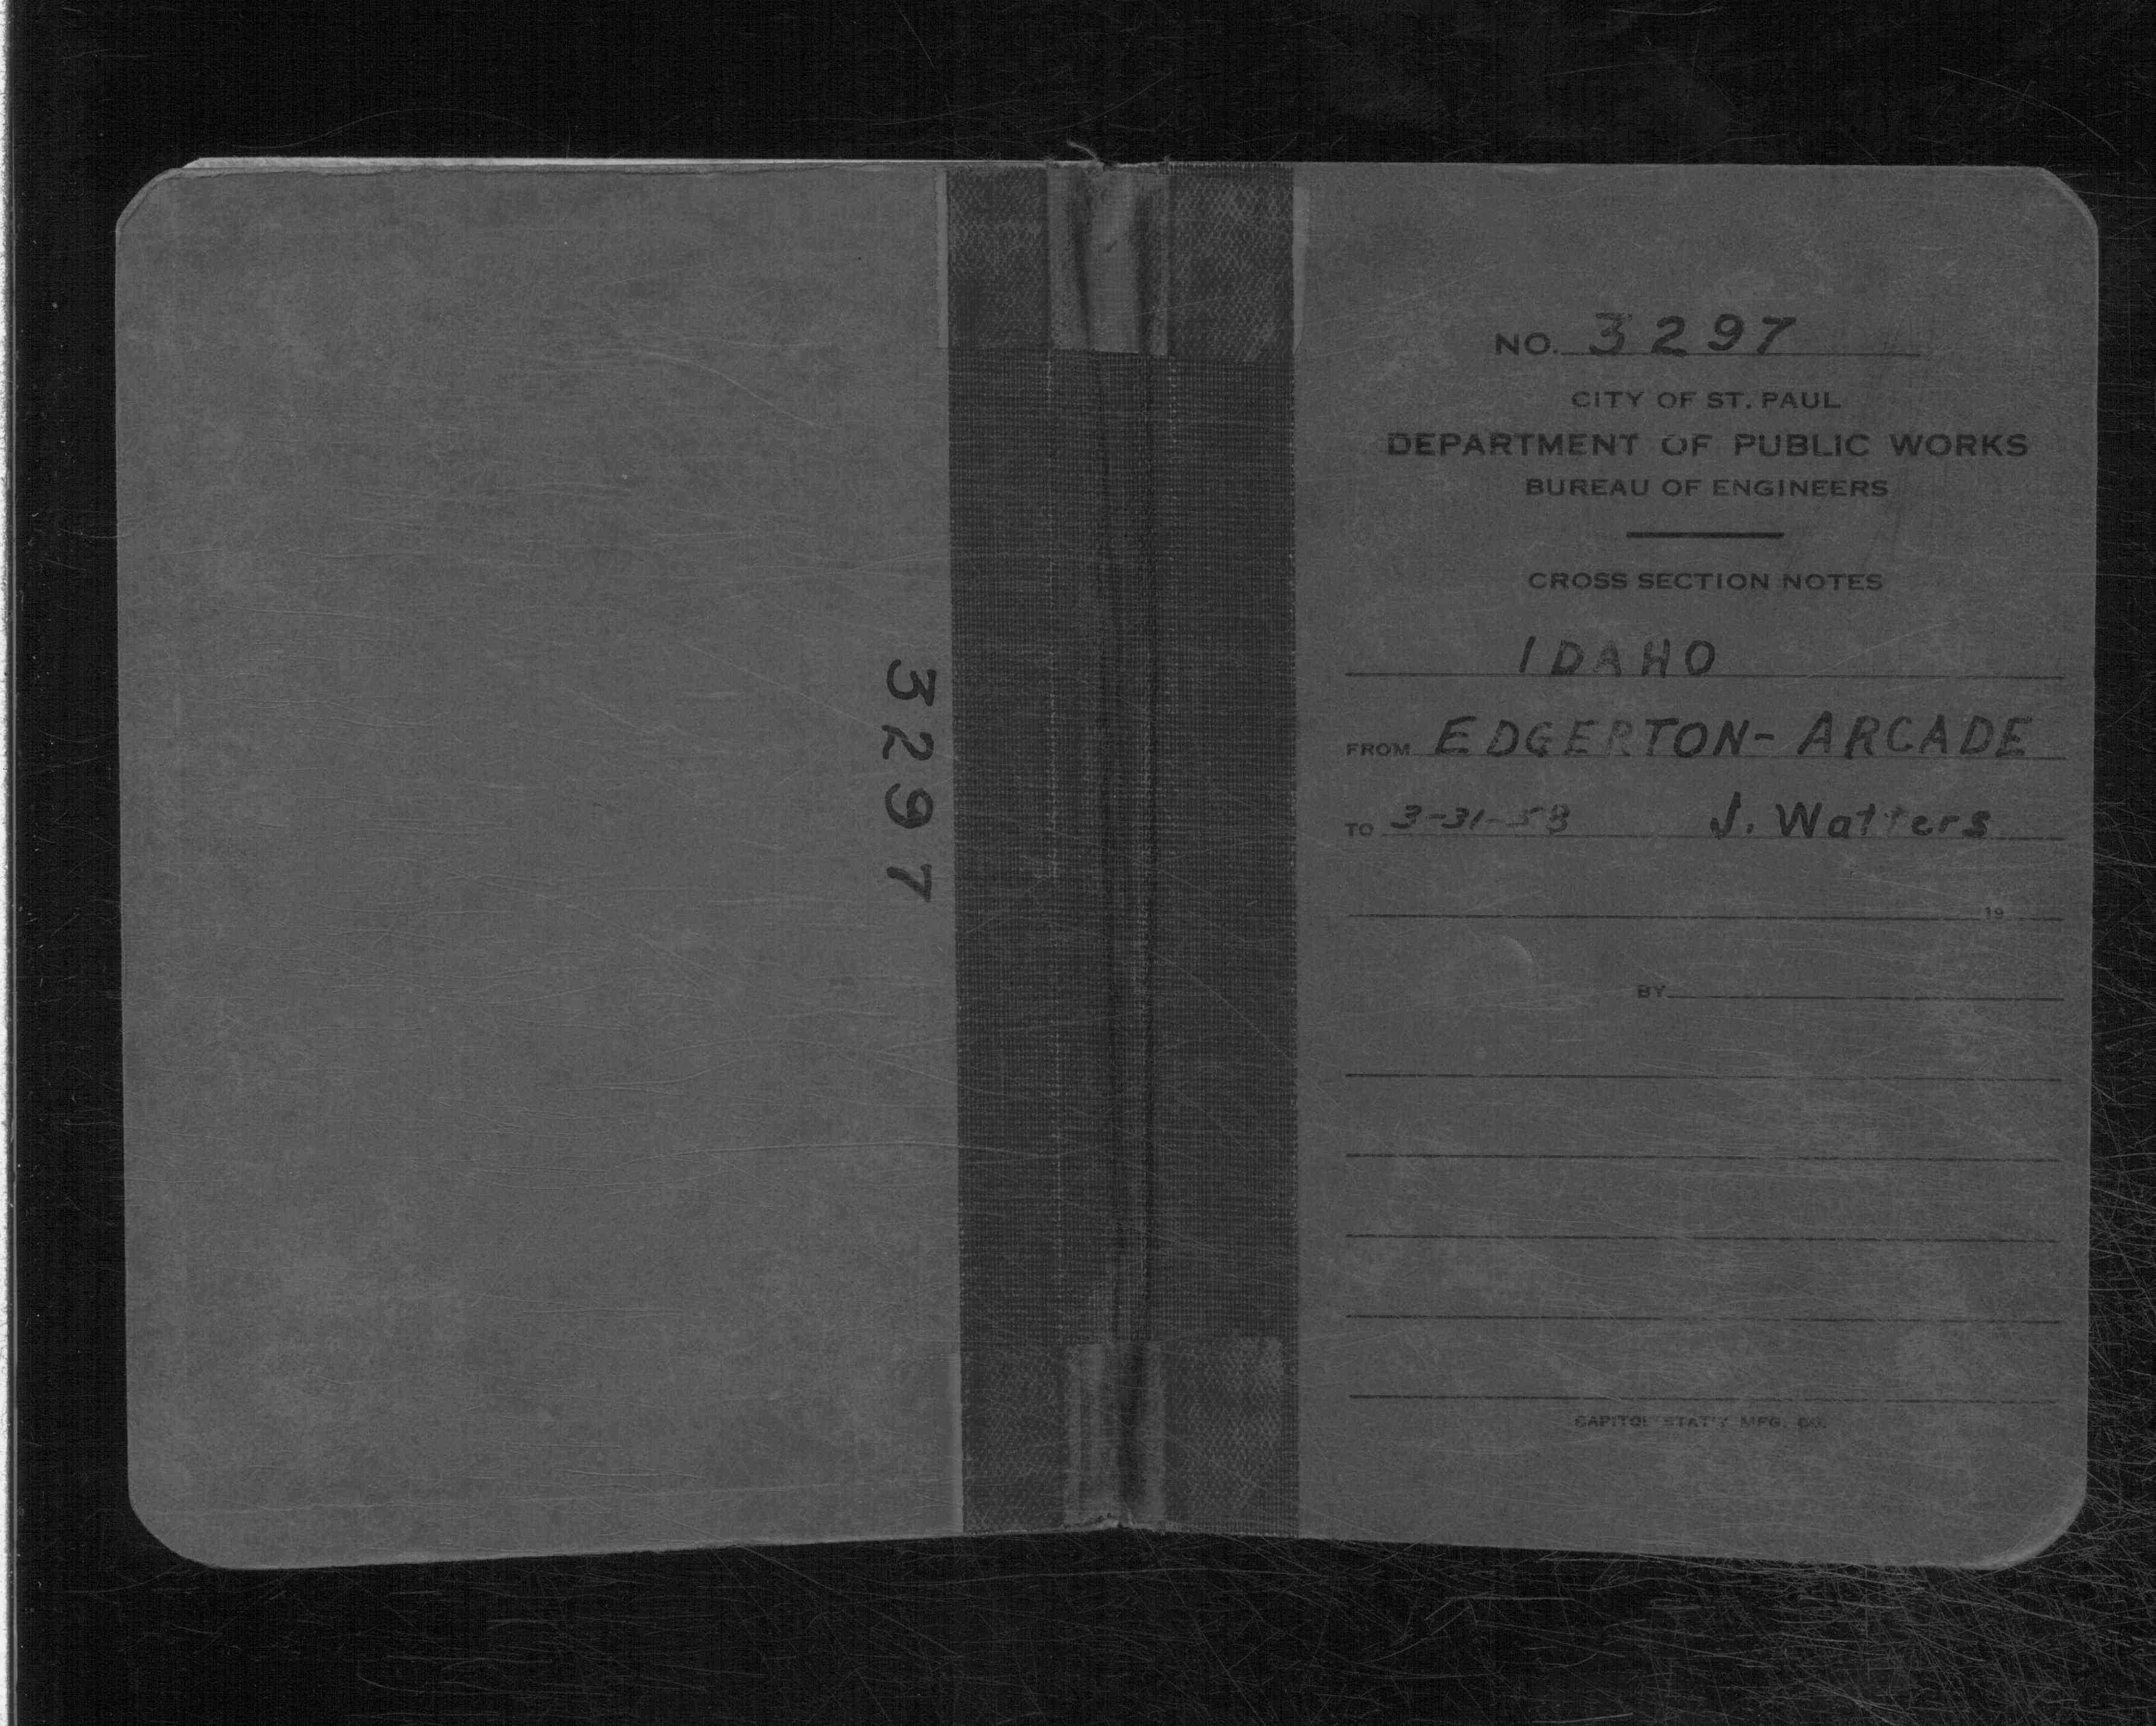 3297
NO. 3297
CITY OF ST. PAUL
DEPARTMENT OF PUBLIC WORKS
BUREAU OF ENGINEERS
CROSS SECTION NOTES
IDAHO
FROM EDGERTON-ARCADE
TO 3-31-58 J. Watters
19
BY
CAPITOL STAT'Y MFG. CO.